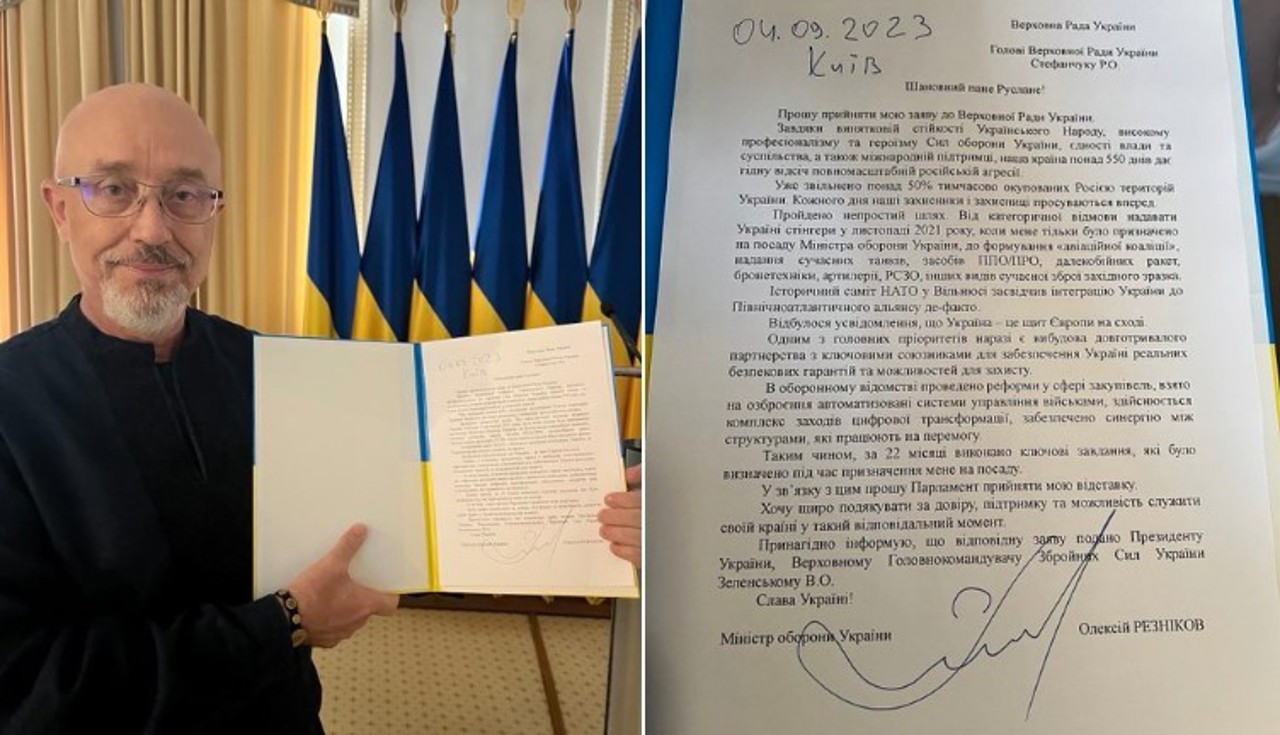 04.09.2023
Київ
Верховна Рада України
Голові Верховної Ради України
Стефанчуку Р.О.
Шановний пане Руслане!
Прошу прийняти мою заяву до Верховної Ради України.
Завдяки винятковій стійкості Українського Народу, високому
професіоналізму та героїзму Сил оборони України, єдності влади та
суспільства, а також міжнародній підтримці, наша країна понад 550 днів дає
гідну відсіч повномасштабній російській агресії.
Уже звільнено понад 50% тимчасово окупованих Росією територій
України. Кожного дня наші захисники і захисниці просуваються вперед.
Пройдено непростий шлях. Від категоричної відмови надавати
Україні стінгери у листопаді 2021 року, коли мене тільки було призначено
на посаду Міністра оборони України, до формування «авіаційної коаліції»,
надання сучасних танків, засобів ППО/ПРО, далекобійних ракет,
бронетехніки, артилерії, РСЗО, інших видів сучасної зброї західного зразка.
Історичний саміт НАТО у Вільнюсі засвідчив інтеграцію України до
Північноатлантичного альянсу де-факто.
Відбулося усвідомлення, що Україна – це щит Європи на сході.
Одним з головних пріоритетів наразі є вибудова довготривалого
партнерства з ключовими союзниками для забезпечення Україні реальних
безпекових гарантій та можливостей для захисту.
В оборонному відомстві проведено реформи у сфері закупівель, взято
на озброєння автоматизовані системи управління військами, здійснюється
комплекс заходів цифрової трансформації, забезпечено синергію між
структурами, які працюють на перемогу.
Таким чином, за 22 місяці виконано ключові завдання, які було
визначено під час призначення мене на посаду.
У зв`язку з цим прошу Парламент прийняти мою відставку.
Хочу щиро подякувати за довіру, підтримку та можливість служити
своїй країні у такий відповідальний момент.
Принагідно інформую, що відповідну заяву подано Президенту
України, Верховному Головнокомандувачу Збройних Сил України
Зеленському В.О.
Слава Україні!
Міністр оборони України
Олексій РЕЗНІКОВ